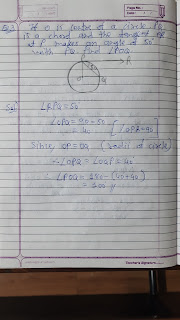 If O is centre of a circle PQ
is a chord and the tangent PR
at P makes an angle of 50°
with PQ find ∠POQ
P
R
O
Q
Sol
∠RPQ = 50°
∠OPQ = 90 - 50
= 40 [∠OPR = 90]
Since OP = OQ (radii of circle)
∠OPQ = ∠OQP = 40
∠POQ = 180 - (40+40)
= 100
Teacher's Signature